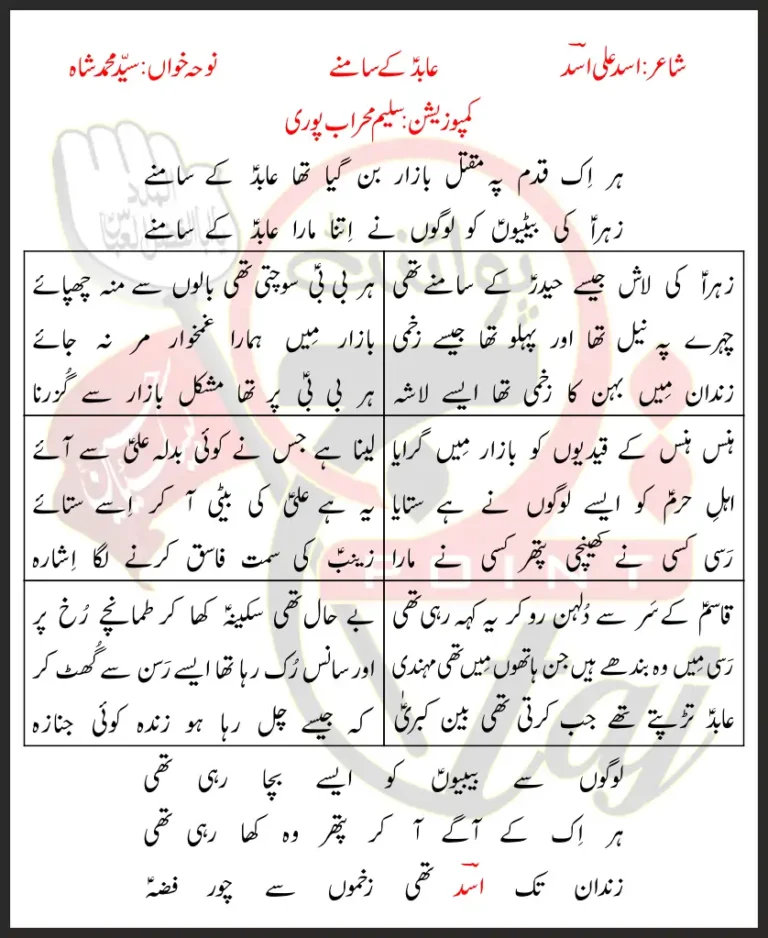 شاعر: اسد علی اسدؔ
عابدؑ کے سامنے
نوحہ خواں: سیّد محمد شاہ
کمپوزیشن: سلیم محراب پوری
ہر اِک قدم پہ مقتل بازار بن گیا تھا عابدؑ کے سامنے
زہراؑ کی بیٹیوںؑ کو لوگوں نے اِتنا مارا عابدؑ کے سامنے
زہراؑ کی لاش جیسے حیدرؑ کے سامنے تھی
چہرے پہ نیل تھا اور پہلو تھا جیسے زخمی
زندان مِیں بہن کا زخمی تھا ایسے لاشہ
ہر بی بیؑ سوچتی تھی بالوں سے منہ چھپائے
بازار مِیں ہمارا غمخوار مر نہ جائے
ہر بی بیؑ پر تھا مشکل بازار سے گُزرنا
ہنس ہنس کے قیدیوں کو بازار مِیں گرایا
اہلِ حرمؑ کو ایسے لوگوں نے ہے ستایا
رَسی کسی نے کھینچی پتھر کسی نے مارا
لینا ہے جس نے کوئی بدلہ علیؑ سے آئے
یہ ہے علیؑ کی بیٹی آ کر اِسے ستائے
زینبؑ کی سمت فاسق کرنے لگا اِشارہ
قاسمؑ کے سَر سے دُلہن رو کر یہ کہہ رہی تھی
رَسی مِیں وہ بندھے ہیں جن ہاتھوں مِیں تھی مہندی
عابدؑ تڑپتے تھے جب کرتی تھی بین کبریٰؑ
بے حال تھی سکینہؑ کھا کر طمانچے رُخ پر
اور سانس رُک رہا تھا ایسے رَسن سے گُھٹ کر
کہ جیسے چل رہا ہو زندہ کوئی جنازہ
لوگوں سے بیبیوںؑ کو ایسے بچا رہی تھی
ہر اِک کے آگے آ کر پتھر وہ کھا رہی تھی
زندان تک اسدؔ تھی زخموں سے چور فضہؑ
پوائنٹ
POINT
Laj